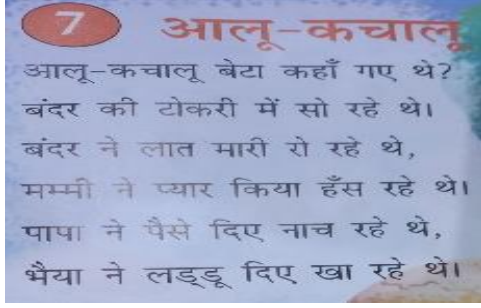 7 आलू-कचालू
आलू-कचालू बेटा कहाँ गए थे?
बंदर की टोकरी में सो रहे थे।
बंदर ने लात मारी रो रहे थे,
मम्मी ने प्यार किया हँस रहे थे।
पापा ने पैसे दिए नाच रहे थे,
भैया ने लड्डू दिए खा रहे थे।